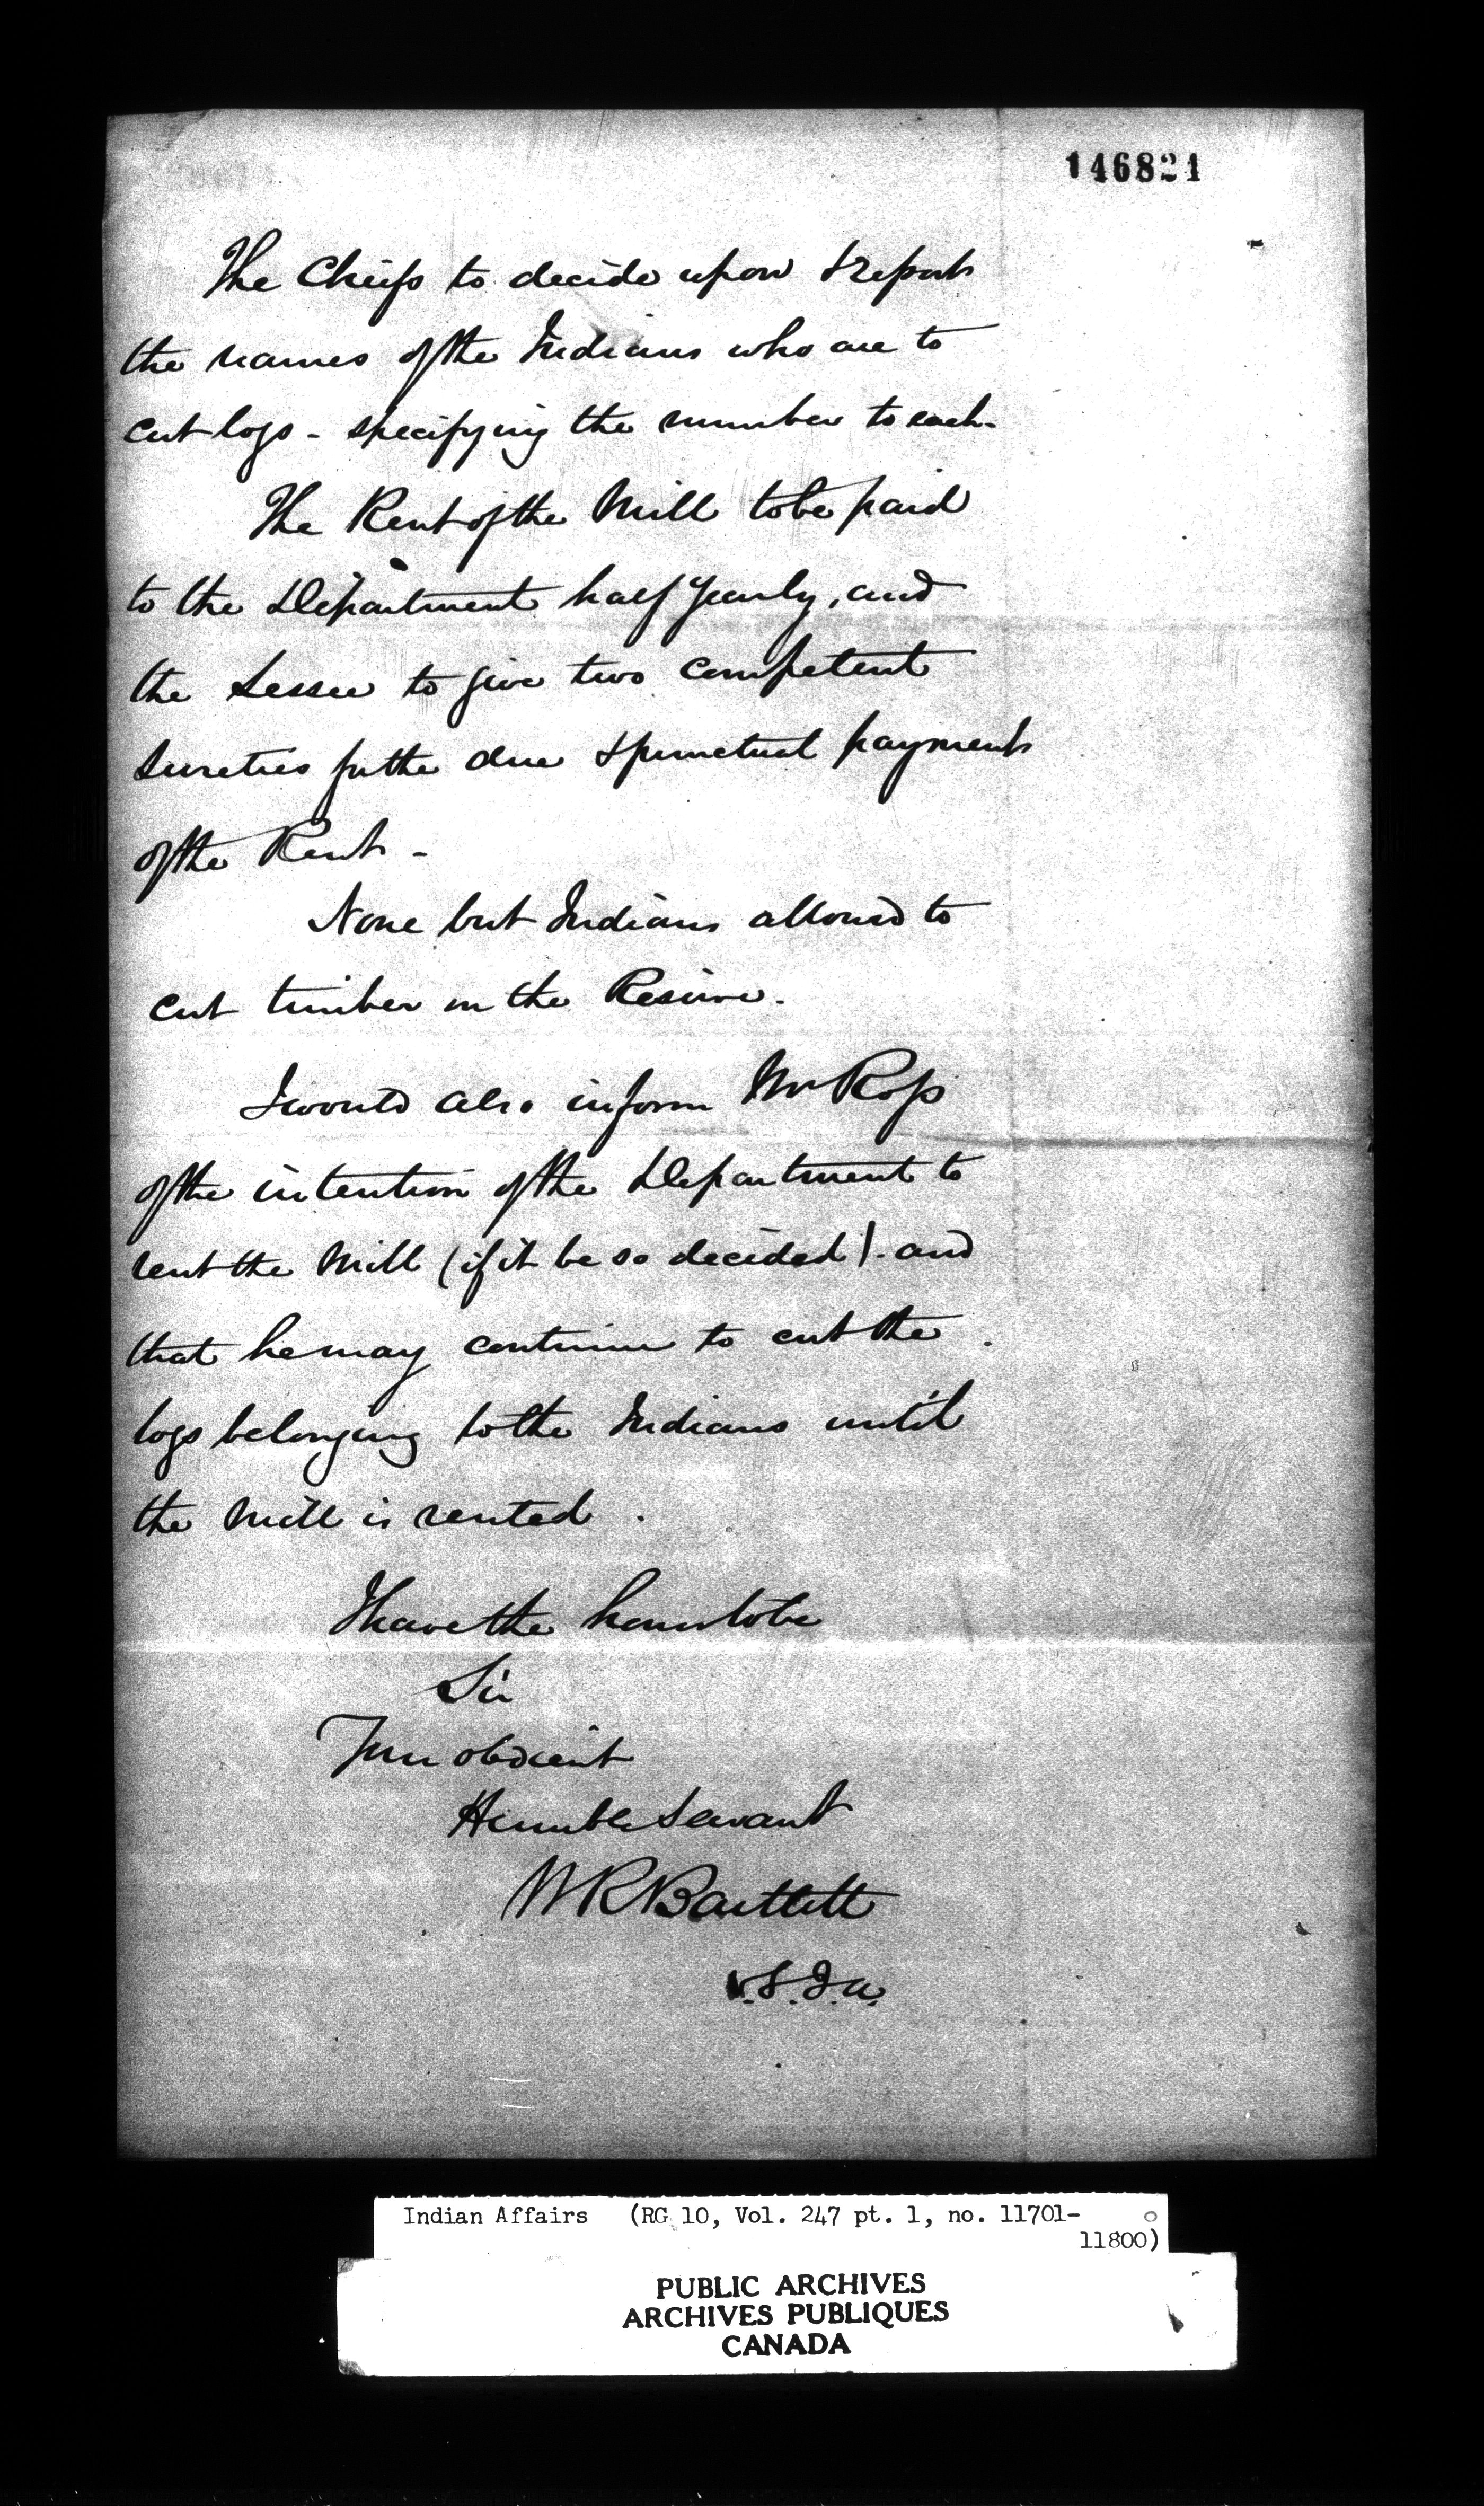 146821
The Chiefs to decide upon & report
the names of the Indians who are to
cut logs - specifying the number to each -
The Rent of the Mill to be paid
to the Department half Yearly, and
the Lessee to give two competent
Sureties for the due & punctual payment
of the Rent -
None but Indians allowed to
cut timber on the Reserve.
I would also inform Mr Ross
of the intention of the Department to
rent the Mill (if it be so decided) - and
that he may continue to cut the
logs belonging to the Indians until
the Mill is rented.
I have the honor to be
Sir
Your obedient
Humble Servant
W R Bartlett
V.S.I.A.
Indian Affairs (RG 10, Vol. 247 pt. 1, no. 11701-
11800)
PUBLIC ARCHIVES
ARCHIVES PUBLIQUES
CANADA